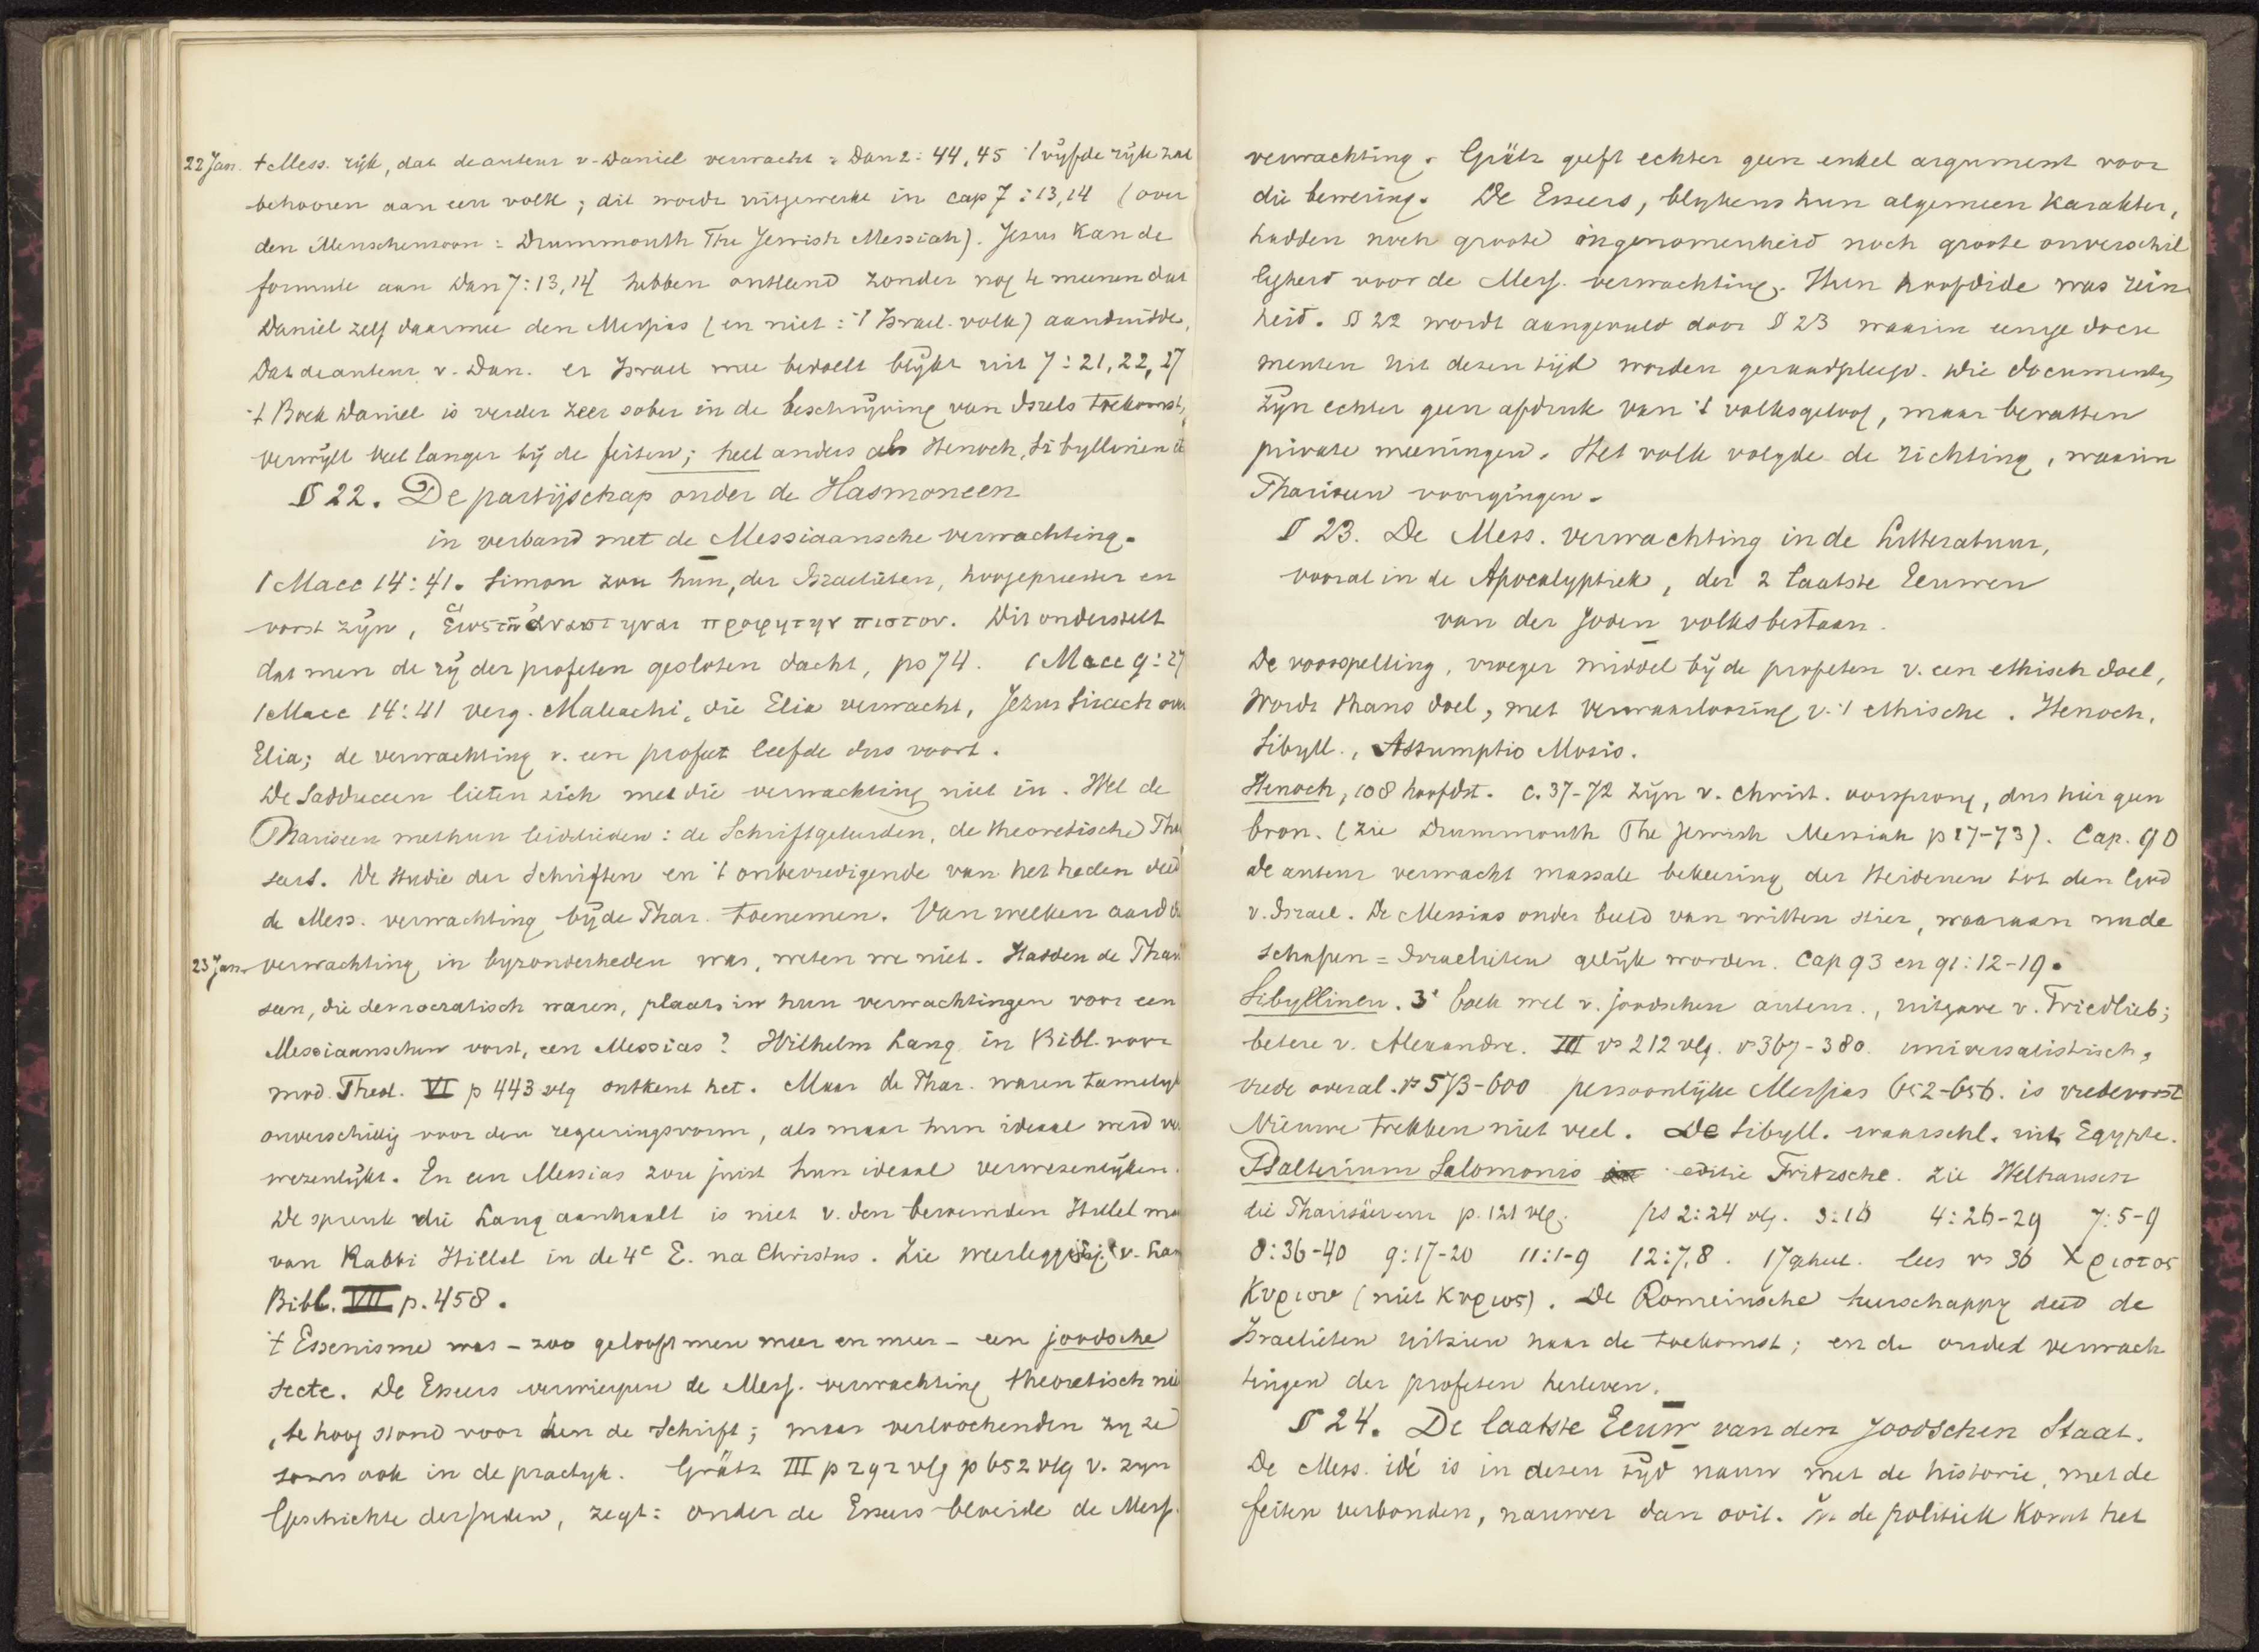 22 Jan. 't Mess. rijk, dat de auteur v. Daniel verwacht = Dan 2: 44, 45 't vijfde rijk zal
behooren aan een volk; dit wordt uitgewerkt in cap 7: 13, 14 (over
den Menschenzoon: Drummouth The Jewish Messiah). Jezus kan de
formule aan Dan 7: 13, 14 hebben ontleend zonder nog te meenen dat
Daniel zelf daarmee den Messias (en niet: 't Israel. volk) aanduidde.
Dat de auteur v. Dan. er Israel mee bedoelt blijkt uit 7: 21, 22, 27
't Boek Daniel is verder zeer sober in de beschrijving van Isrels toekomst,
verwijlt veel langer bij de feiten; heel anders als Henoch, Sibyllinen
§ 22. De partijschap onder de Hasmoneen
in verband met de Messiaansche verwachting.
1 Macc 14: 41. Simon zou hun, der Israelieten, hoogepriester en
vorst zijn, ἑως τοῦ ἀναστηναι προφητην πιστον. Dit onderstelt
dat men de rij der profeten gesloten dacht, ps 74. 1 Macc 9: 27
1 Macc 14: 41 verg. Maleachi, die Elia verwacht, Jezus Sirach over
Elia; de verwachting v. een profeet leefde dus voort.
De Sadduceen lieten zich met die verwachting niet in. Wel de
Phariseen met hun leidslieden: de Schriftgeleerden, de theoretische Phari
seers. De studie der Schriften en 't onbevredigende van het heden deed
de Mess. verwachting bij de Phar. toenemen. Van welken aard die
23 Jan. verwachting in byzonderheden was, weten we niet. Hadden de Phari
seen, die democratisch waren, plaats in hun verwachtingen voor een
Messiaanschen vorst, een Messias? Wilhelm Lang in Bibl. voor
mod. Theol. VI p 443 vlg ontkent het. Maar de Phar. waren tamelyk
onverschillig voor den regeeringsvorm, als maar hun ideaal werd ver
wezenlijkt. En een Messias zou juist hun ideaal verwezenlijken.
De spreuk die Lang aanhaalt is niet v. den beroemden Hillel maar
van Rabbi Hillel in de 4e E. na Christus. Zie weerlegging v. Lang
Bibl. VII p. 458.
't Essenisme was – zoo gelooft men meer en meer – een joodsche
secte. De Esseers verwierpen de Mess. verwachting theoretisch niet
, te hoog stond voor hen de Schrift; maar verloochenden zy ze
soms ook in de practyk. Grätz III p 292 vlg p 652 vlg v. zyn
Geschichte der Juden, zegt: onder de Esseers bloeide de Mess.
verwachting. Grätz geeft echter geen enkel argument voor
die bewering. De Esseers, blykens hun algemeen karakter,
hadden noch groote ingenomenheid noch groote onverschil
ligheid voor de Mess. verwachting. Hun hoofdidé was rein
heid. § 22 wordt aangevuld door § 23 waarin eenige docu
menten uit dezen tijd worden geraadpleegd. Die documenten
zijn echter geen afdruk van 't volksgeloof, maar bevatten
private meeningen. Het volk volgde de richting, waarin
Phariseen voorgingen.
§ 23. De Mess. verwachting in de Litteratuur,
vooral in de Apocalyptiek, der 2 laatste Eeuwen
van der Joden volksbestaan.
De voorspelling, vroeger middel bij de profeten v. een ethisch doel,
wordt thans doel, met verwaarloozing v. 't ethische. Henoch,
Sibyll., Assumptio Mosis.
Henoch, 108 hoofdst. c. 37-72 zijn v. Christ. oorsprong, dus hier geen
bron. (zie Drummouth The Jewish Messiah p 17-73). Cap. 90
de auteur verwacht massale bekeering der Heidenen tot den God
v. Israel. De Messias onder beeld van witten stier, waaraan nu de
schapen = Israelieten gelijk worden. Cap 93 en 91: 12-19.
Sibyllinen. 3e boek wel v. joodschen auteur., uitgave v. Friedlieb;
betere v. Alexandre. III vs 212 vlg. vs 367-380. universalistisch,
vrede overal. vs 573-600 persoonlijke Messias 652-656. is vredevorst
Nieuwe trekken niet veel. De Sibyll. waarschl. uit Egypte.
Psalterium Salomonis editie Fritzsche. Zie Welhausen
die Pharisäer enz p. 121 vlg. ps 2: 24 vlg. 3: 16 4: 26-29 7: 5-9
8: 36-40 9: 17-20 11: 1-9 12: 7, 8. 17 geheel. lees vs 36 Χριστος
Κυριου (niet Κυριος). De Romeinsche heerschappy deed de
Israelieten uitzien naar de toekomst; en de oude verwach
tingen der profeten herleven.
§ 24. De laatste Eeuw van den Joodschen Staat.
De Mess. idé is in dezen tijd nauw met de historie, met de
feiten verbonden, nauwer dan ooit. In de politiek komt het